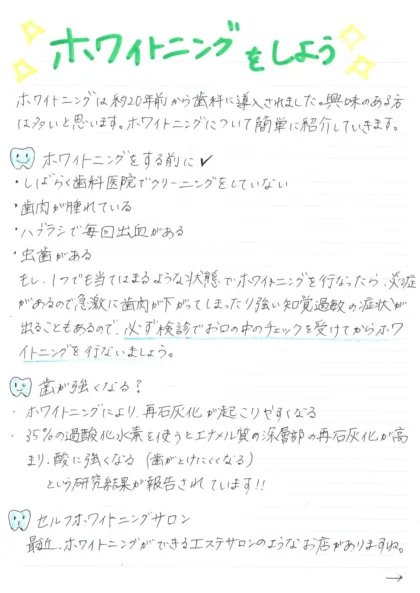 ホワイトニングをしよう
ホワイトニングは約20年前から歯科に導入されました。興味のある方
は多いと思います。ホワイトニングについて簡単に紹介していきます。
ホワイトニングをする前に✓
・しばらく歯科医院でクリーニングをしていない
・歯肉が腫れている
・ハブラシで毎回出血がある
・虫歯がある
もし、1つでも当てはまるような状態でホワイトニングを行なったら、炎症
があるので急激に歯肉が下がってしまったり強い知覚過敏の症状が
出ることもあるので、必ず検診でお口の中のチェックを受けてからホワ
イトニングを行ないましょう。
歯が強くなる?
・ホワイトニングにより、再石灰化が起こりやすくなる
・35%の過酸化水素を使うとエナメル質の深層部の再石灰化が高
まり、酸に強くなる (歯がとけにくくなる)
という研究結果が報告されています!!
セルフホワイトニングサロン
最近、ホワイトニングができるエステサロンのようなお店がありますね。
→